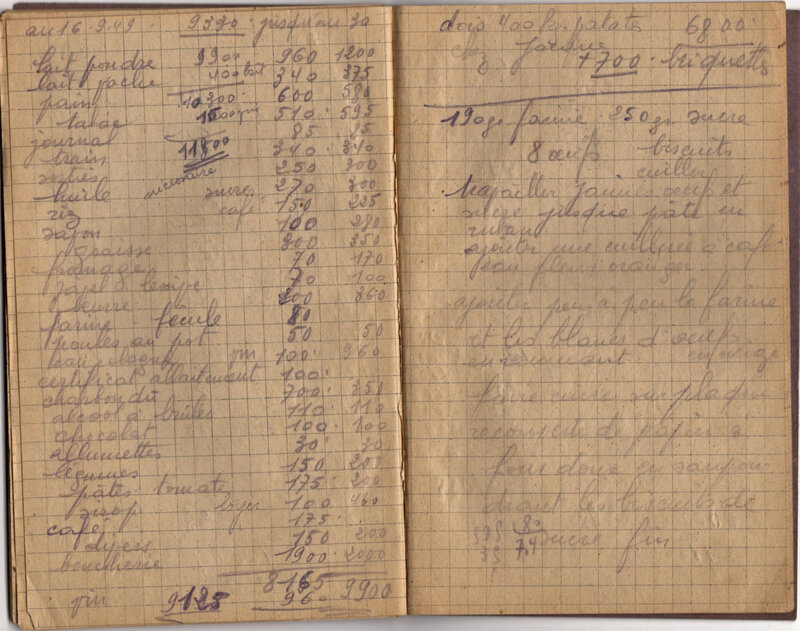 au 16.9.49 9320 jusqu'au 30
lait poudre 9900 960 1200
lait vache 400 lait 340 375
pain 10.300 600 580
1500 510 595
journal 85 85
train 11800 340 340
250 300
huile sucre 270 300
riz café 150 225
savon 100 280
graisse 300 350
fromage 70 170
lessive 70 100
beurre 200 360
farine fécule 80
poules au pot 50 50
eau cologne 100 960
certificat allaitement 100
charbon 700 350
alcool à brûler 110 110
chocolat 100 100
allumettes 30 30
légumes 150 200
pâtes tomate 175 200
sirop loyer 100 460
café 175
divers 150 200
boucherie 1900 2000
8165
9125 960 9900
dois 400 kg patates 6800
chez
+ 700 briquettes
190 gr farine 850 gr sucre
8 oeufs biscuits
cuiller
travailler jaunes oeufs et
sucre jusque pâte en
ruban
ajouter une cuillère à café
eau fleurs oranger
ajouter peu à peu la farine
et les blancs d'oeufs
en remuant en neige
faire cuire sur plaque
recouverte de papier à
four doux en saupou-
drant les biscuits de
sucre fin